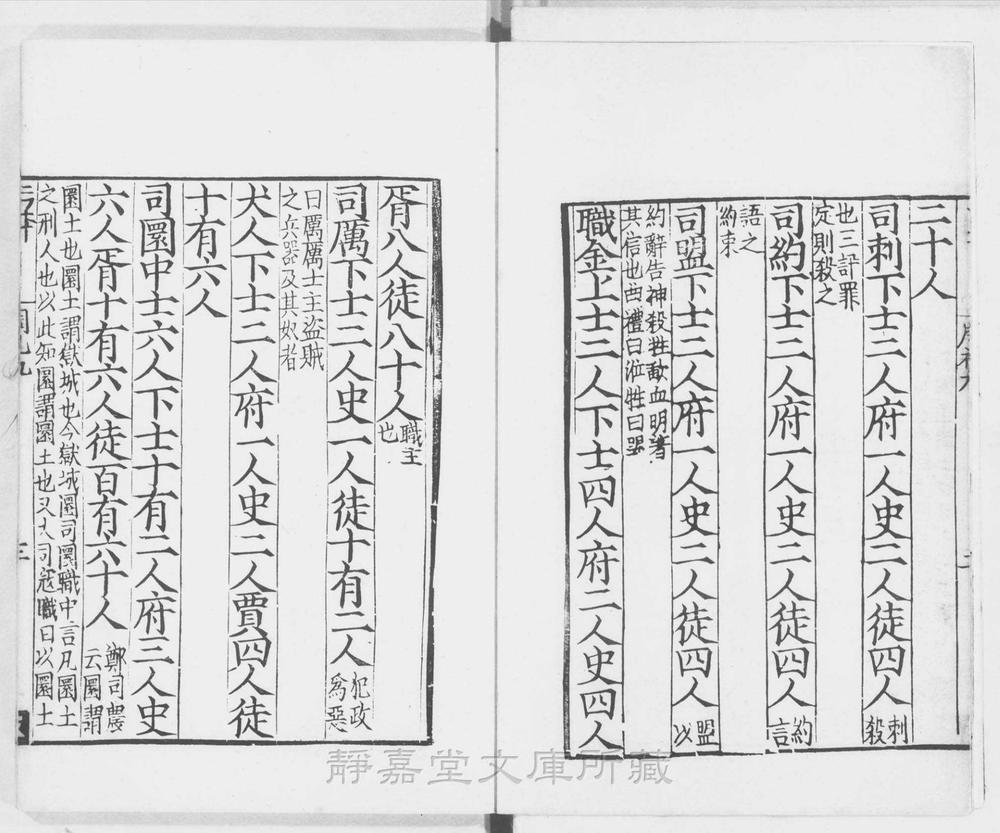 二十人
司刺下士二人府一人史二人徒四人刺殺
也三訊罪
定則殺之
司約下士二人府一人史二人徒四人約言
語之
約束
司盟下士二人府一人史二人徒四人盟以
約辭告神殺牲歃血明著
其信也曲禮曰涖牲曰盟
職金上士二人下士四人府二人史四人
胥八人徒八十人職主也
司厲下士二人史一人徒十有二人犯政為惡
曰厲厲士主盜賊
之兵器及其奴者
犬人下士二人府一人史二人賈四人徒
十有六人
司圜中士六人下士十有二人府三人史
六人胥十有六人徒百有六十人鄭司農云圜謂
圜土也圜土謂獄城也今獄城圜司圜職中言凡圜土
之刑人也以此知圜謂圜土也又大司寇職曰以圜土
靜嘉堂文庫所藏